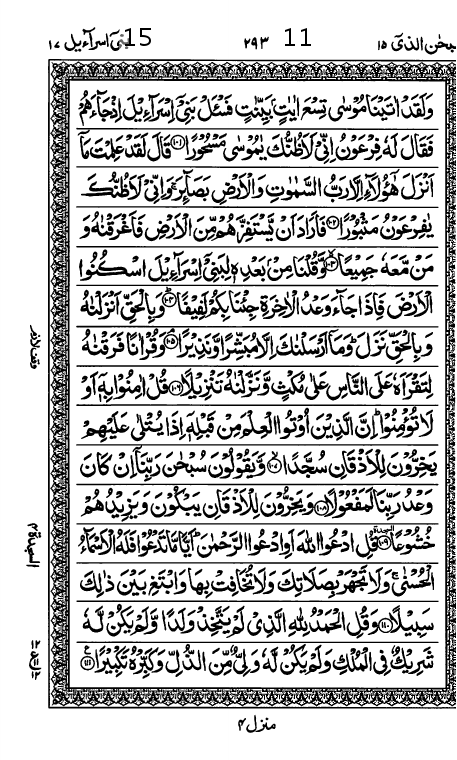 سبحٰن الذیٓ ۱۵ 11 ۲۹۳ 15 بنیٓ اسرآءیل ۱۷
وَلَقَدْ اٰتَیْنَا مُوْسٰی تِسْعَ اٰیٰتٍۭ بَیِّنٰتٍ فَسْـَٔلْ بَنِیْۤ اِسْرَآءِیْلَ اِذْ جَآءَهُمْ
فَقَالَ لَهٗ فِرْعَوْنُ اِنِّیْ لَاَظُنُّكَ یٰمُوْسٰی مَسْحُوْرًا ﴿۱۰۱﴾ قَالَ لَقَدْ عَلِمْتَ مَاۤ
اَنْزَلَ هٰۤؤُلَآءِ اِلَّا رَبُّ السَّمٰوٰتِ وَالْاَرْضِ بَصَآىِٕرَ ۚ وَاِنِّیْ لَاَظُنُّكَ
یٰفِرْعَوْنُ مَثْبُوْرًا ﴿۱۰۲﴾ فَاَرَادَ اَنْ یَّسْتَفِزَّهُمْ مِّنَ الْاَرْضِ فَاَغْرَقْنٰهُ وَ
مَنْ مَّعَهٗ جَمِیْعًا ﴿۱۰۳﴾ وَّقُلْنَا مِنْۢ بَعْدِهٖ لِبَنِیْۤ اِسْرَآءِیْلَ اسْكُنُوا
الْاَرْضَ فَاِذَا جَآءَ وَعْدُ الْاٰخِرَةِ جِئْنَا بِكُمْ لَفِیْفًا ﴿۱۰۴﴾ وَبِالْحَقِّ اَنْزَلْنٰهُ
وَبِالْحَقِّ نَزَلَ ؕ وَمَاۤ اَرْسَلْنٰكَ اِلَّا مُبَشِّرًا وَّنَذِیْرًا ﴿۱۰۵﴾ وَقُرْاٰنًا فَرَقْنٰهُ
لِتَقْرَاَهٗ عَلَی النَّاسِ عَلٰی مُكْثٍ وَّنَزَّلْنٰهُ تَنْزِیْلًا ﴿۱۰۶﴾ قُلْ اٰمِنُوْا بِهٖۤ اَوْ
لَا تُؤْمِنُوْا ؕ اِنَّ الَّذِیْنَ اُوْتُوا الْعِلْمَ مِنْ قَبْلِهٖۤ اِذَا یُتْلٰی عَلَیْهِمْ
یَخِرُّوْنَ لِلْاَذْقَانِ سُجَّدًا ﴿۱۰۷﴾ وَّیَقُوْلُوْنَ سُبْحٰنَ رَبِّنَاۤ اِنْ كَانَ
وَعْدُ رَبِّنَا لَمَفْعُوْلًا ﴿۱۰۸﴾ وَیَخِرُّوْنَ لِلْاَذْقَانِ یَبْكُوْنَ وَیَزِیْدُهُمْ
خُشُوْعًا ﴿۱۰۹﴾ السجدة قُلِ ادْعُوا اللّٰهَ اَوِ ادْعُوا الرَّحْمٰنَ ؕ اَیًّا مَّا تَدْعُوْا فَلَهُ الْاَسْمَآءُ
الْحُسْنٰی ۚ وَلَا تَجْهَرْ بِصَلَاتِكَ وَلَا تُخَافِتْ بِهَا وَابْتَغِ بَیْنَ ذٰلِكَ
سَبِیْلًا ﴿۱۱۰﴾ وَقُلِ الْحَمْدُ لِلّٰهِ الَّذِیْ لَمْ یَتَّخِذْ وَلَدًا وَّلَمْ یَكُنْ لَّهٗ
شَرِیْكٌ فِی الْمُلْكِ وَلَمْ یَكُنْ لَّهٗ وَلِیٌّ مِّنَ الذُّلِّ وَكَبِّرْهُ تَكْبِیْرًا ﴿۱۱۱﴾
السجدة ۴
منزل ۴